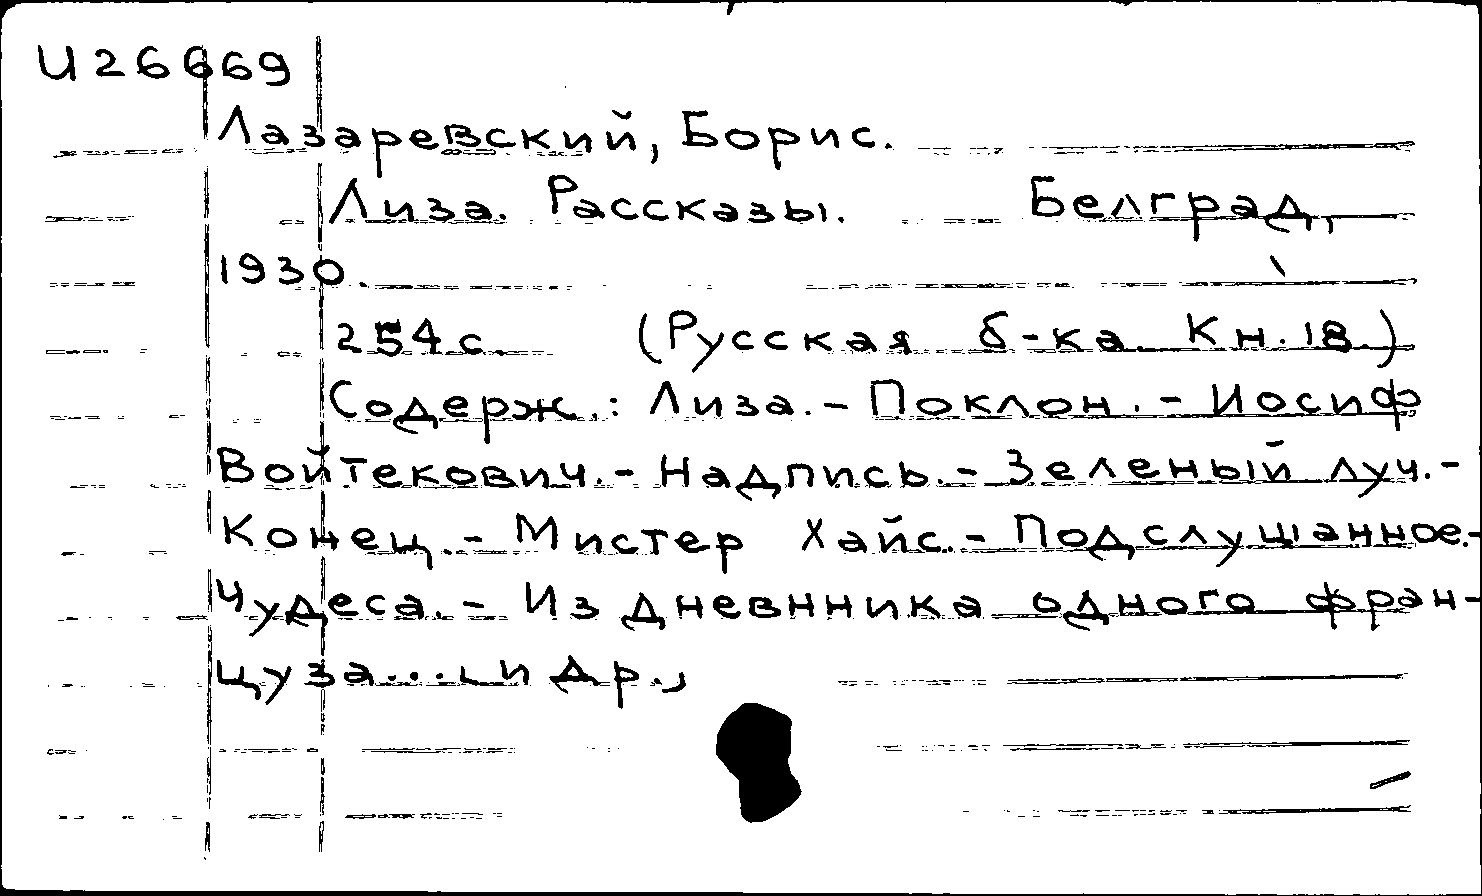 И26669
Лазаревский, Борис.
Лиза. Рассказы. Белград,
1930.
254 с. (Русская б-ка. Кн. 18.)
Содерж.: Лиза. - Поклон. - Иосиф
Войтекович. - Надпись. - Зеленый луч. -
Конец. - Мистер Хайс. - Подслушанное. -
Чудеса. - Из дневнника одного фран-
цуза... и др.